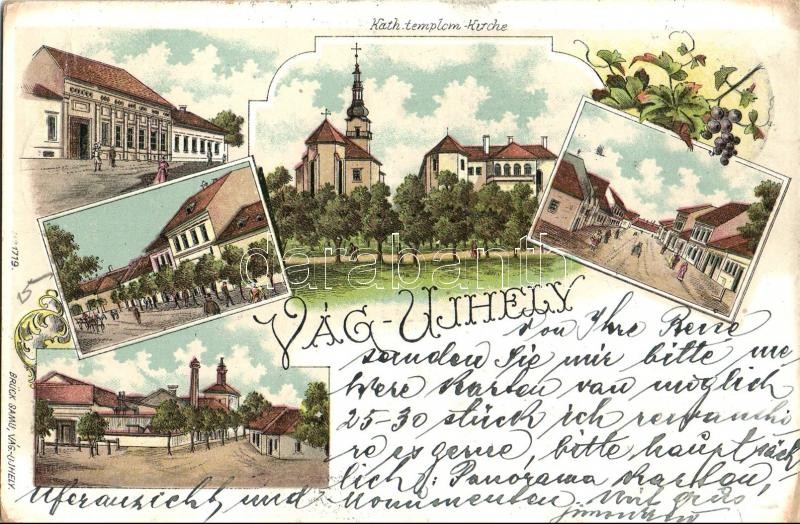 Kath. templom-Kirche
VÁG-UJHELY
No 1719.
BRÜCK SAMU, VÁG-UJHELY.
darabanth
von Ihre Reise
sanden Sie mir bitte me
were Karten van möglich
25-30 stück ich rewanshi
re es gerne, bitte hauptsäck
lich: Panorama Karten,
Uferansicht und Monumenten. Viel Grus